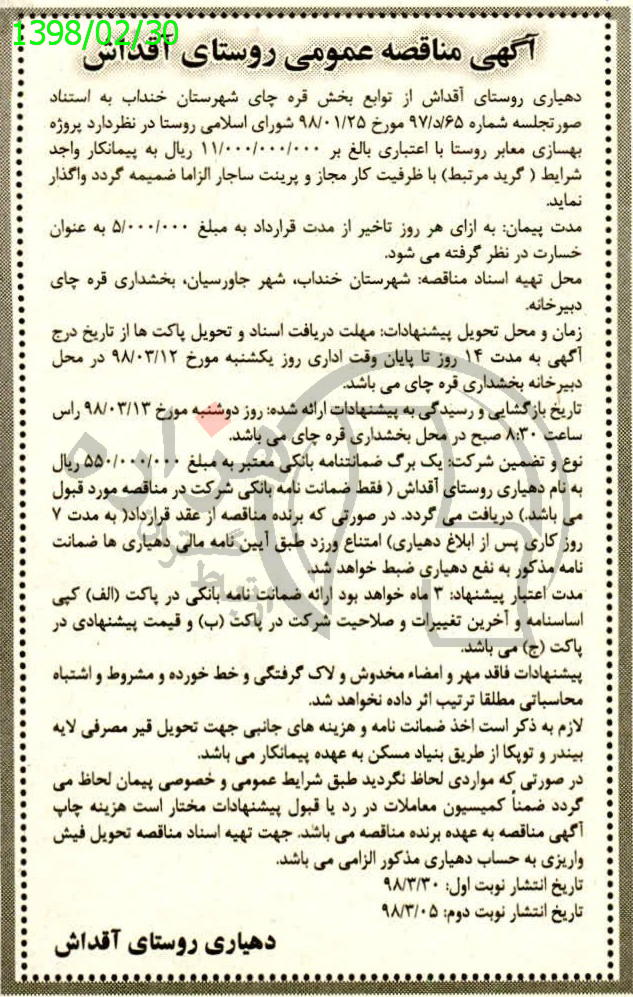 1398/02/30
آگهی مناقصه عمومی روستای آقداش
دهیاری روستای آقداش از توابع بخش قره چای شهرستان خنداب به استناد
صورتجلسه شماره ۶۵/د/۹۷ مورخ ۹۸/۰۱/۲۵ شورای اسلامی روستا در نظردارد پروژه
بهسازی معابر روستا با اعتباری بالغ بر ۱۱/۰۰۰/۰۰۰/۰۰۰ ریال به پیمانکار واجد
شرایط ( گرید مرتبط) با ظرفیت کار مجاز و پرینت ساجار الزاما ضمیمه گردد واگذار
نماید.
مدت پیمان: به ازای هر روز تاخیر از مدت قرارداد به مبلغ ۵/۰۰۰/۰۰۰ به عنوان
خسارت در نظر گرفته می شود.
محل تهیه اسناد مناقصه: شهرستان خنداب، شهر جاورسیان، بخشداری قره چای
دبیرخانه.
زمان و محل تحویل پیشنهادات: مهلت دریافت اسناد و تحویل پاکت ها از تاریخ درج
آگهی به مدت ۱۴ روز تا پایان وقت اداری روز یکشنبه مورخ ۹۸/۰۳/۱۲ در محل
دبیرخانه بخشداری قره چای می باشد.
تاریخ بازگشایی و رسیدگی به پیشنهادات ارائه شده: روز دوشنبه مورخ ۹۸/۰۳/۱۳ راس
ساعت ۸:۳۰ صبح در محل بخشداری قره چای می باشد.
نوع و تضمین شرکت: یک برگ ضمانتنامه بانکی معتبر به مبلغ ۵۵۰/۰۰۰/۰۰۰ ریال
به نام دهیاری روستای آقداش ( فقط ضمانت نامه بانکی شرکت در مناقصه مورد قبول
می باشد.) دریافت می گردد. در صورتی که برنده مناقصه از عقد قرارداد( به مدت ۷
روز کاری پس از ابلاغ دهیاری) امتناع ورزد طبق آیین نامه مالی دهیاری ها ضمانت
نامه مذکور به نفع دهیاری ضبط خواهد شد.
مدت اعتبار پیشنهاد: ۳ ماه خواهد بود ارائه ضمانت نامه بانکی در پاکت (الف) کپی
اساسنامه و آخرین تغییرات و صلاحیت شرکت در پاکت (ب) و قیمت پیشنهادی در
پاکت (ج) می باشد.
پیشنهادات فاقد مهر و امضاء مخدوش و لاک گرفتگی و خط خورده و مشروط و اشتباه
محاسباتی مطلقا ترتیب اثر داده نخواهد شد.
لازم به ذکر است اخذ ضمانت نامه و هزینه های جانبی جهت تحویل قیر مصرفی لایه
بیندر و توپکا از طریق بنیاد مسکن به عهده پیمانکار می باشد.
در صورتی که مواردی لحاظ نگردید طبق شرایط عمومی و خصوصی پیمان لحاظ می
گردد ضمناً کمیسیون معاملات در رد یا قبول پیشنهادات مختار است هزینه چاپ
آگهی مناقصه به عهده برنده مناقصه می باشد. جهت تهیه اسناد مناقصه تحویل فیش
واریزی به حساب دهیاری مذکور الزامی می باشد.
تاریخ انتشار نوبت اول: ۹۸/۳/۳۰
تاریخ انتشار نوبت دوم: ۹۸/۳/۰۵
دهیاری روستای آقداش